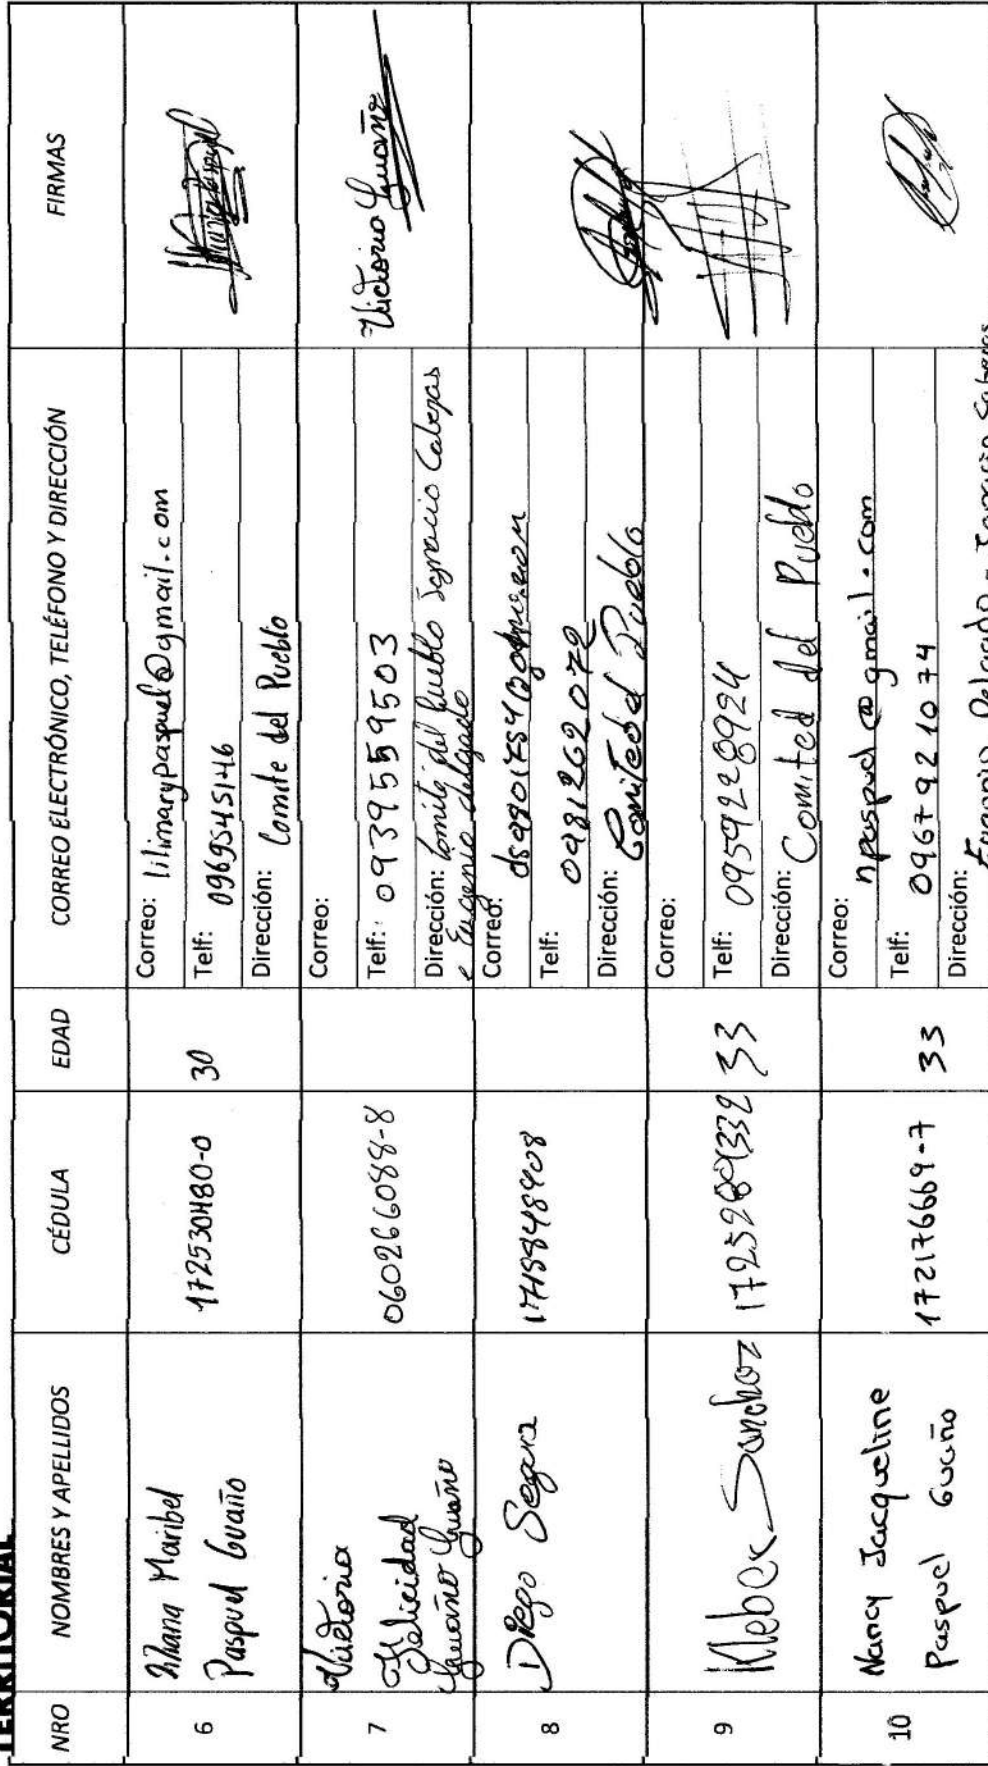 TERRITORIAL
NRO NOMBRES Y APELLIDOS CÉDULA EDAD CORREO ELECTRÓNICO, TELÉFONO Y DIRECCIÓN FIRMAS
6
Maribel
Paspuel Guaño
172530480-0
30
Correo: lilimarypaspuel@gmail.com
Telf: 0969545146
Dirección: Comite del Pueblo
7
Victoria
Felicidad
Guaño Guaño
060266088-8
Correo:
Telf: 0939559503
Dirección: Comité del Pueblo Ignacio Cabezas
Eugenio delgado
Victoria Guaño
8
Diego Segura
Correo:
Telf: 0981262072
Dirección: Comite del Pueblo
9
Kleber Sanchez
1725289332
33
Correo:
Telf: 0959228924
Dirección: Comited del Pueblo
10
Nancy Jacqueline
Paspuel Guaño
172176669-7
33
Correo: npaspuel@gmail.com
Telf: 0967921074
Dirección: Eugenio Delgado - Ignacio Cabezas